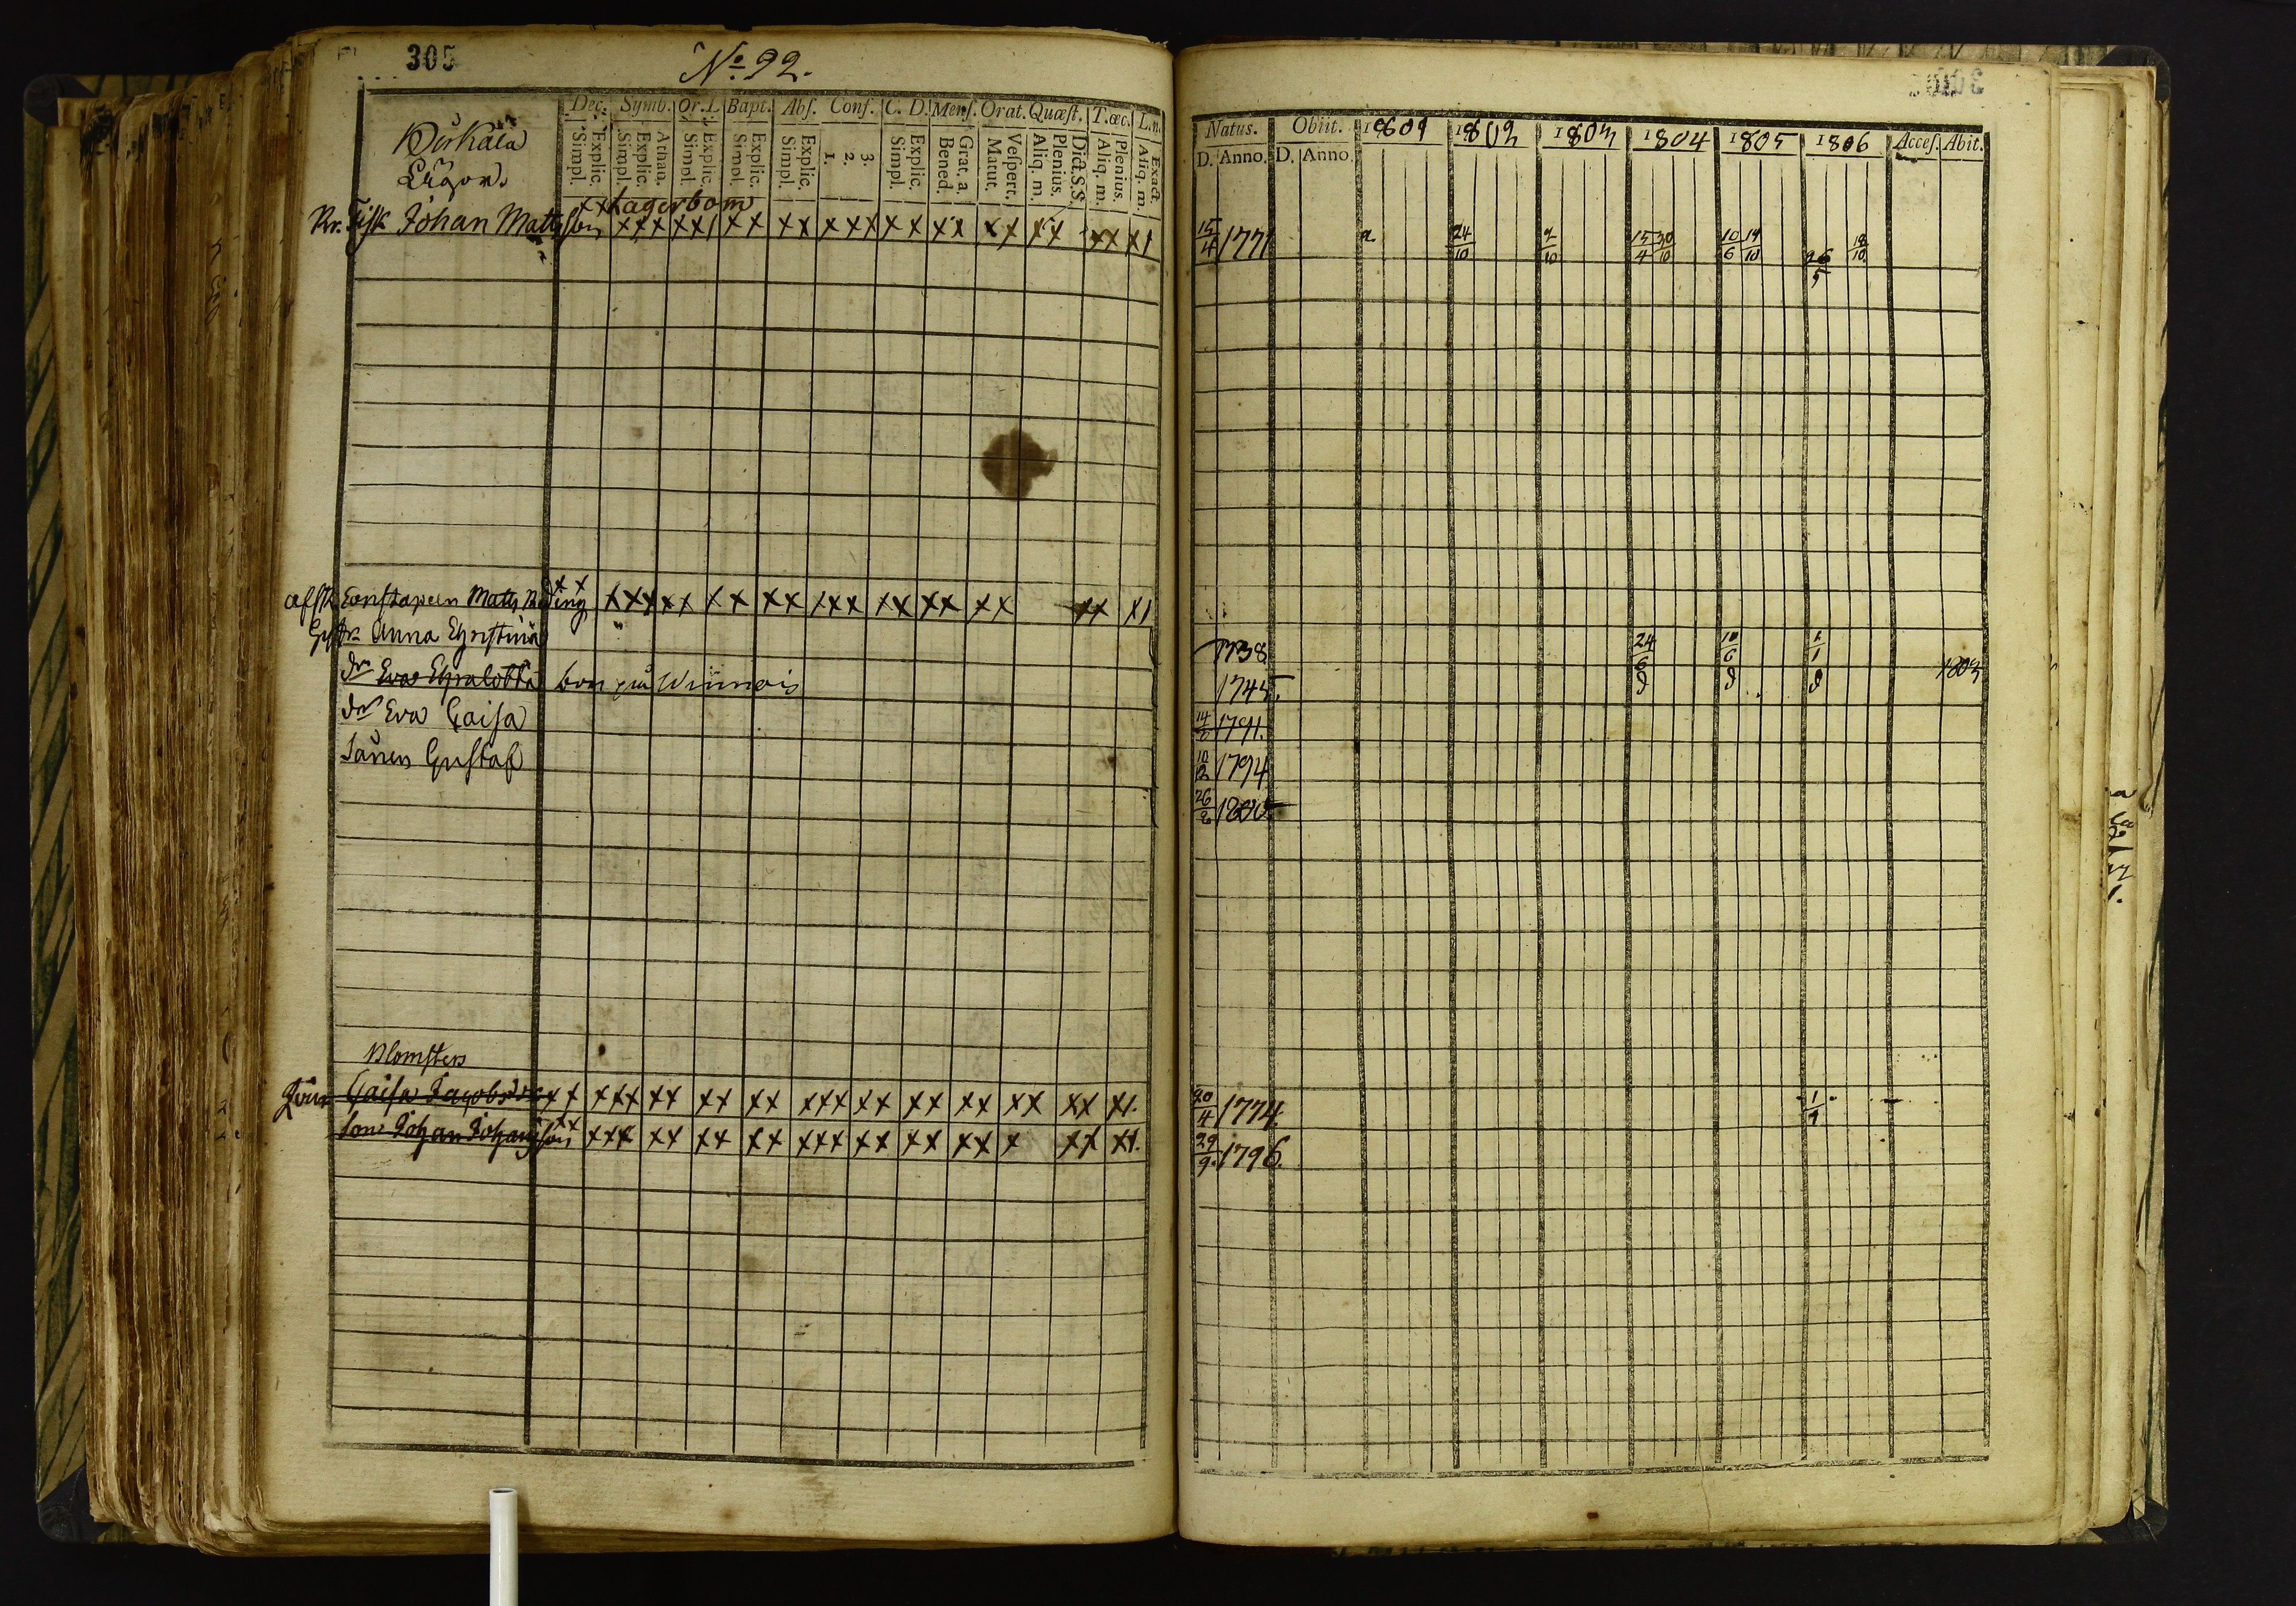 305
No. 92.
Dec. Symb. Or. D. Bapt. Abs. Conf. C. D. Mens. Orat. Quæst. T. œc. L. n.
Simpl. Explic. Simpl. Explic. Athan. Simpl. Explic. Simpl. Explic. Simpl. Explic. 1. 2. 3. Simpl. Explic. Bened. Grat. a. Matut. Vespert. Aliq. m. Plenius. Dict. S.S. Aliq. m. Plenius. Aliq. m. Exact.
xx Lagerbom
Kr. Fisk Johan Mattsson xxx xx1 xx xx xxx xx xx xx xx xx x1
Constapeln Matts xx xxx xx xx xx xxx xx xx xx xx x1
Anna Christina
dr Eva Charlotta bor på Winnois
dr Eva Caisa
Gustaf
Blomsters
Caisa Jacobsdr xx xxx xx xx xx xxx xx xx xx xx xx x1.
Son Johan Johansson xx xxx xx xx xx xxx xx xx xx x xx x1.
Natus. Obiit. 1801 1802 1803 1804 1805 1806 Acces. Abit.
D. Anno. D. Anno.
15/4 1771 24/10 2/10 15/4 30/10 10/6 19/10 26/5 18/10
1738 24/6 10/6 1/1
1745. 1803
14/2 1791.
10/2 1794
26/2 1800
20/4 1774. 1/1
29/9 1796.